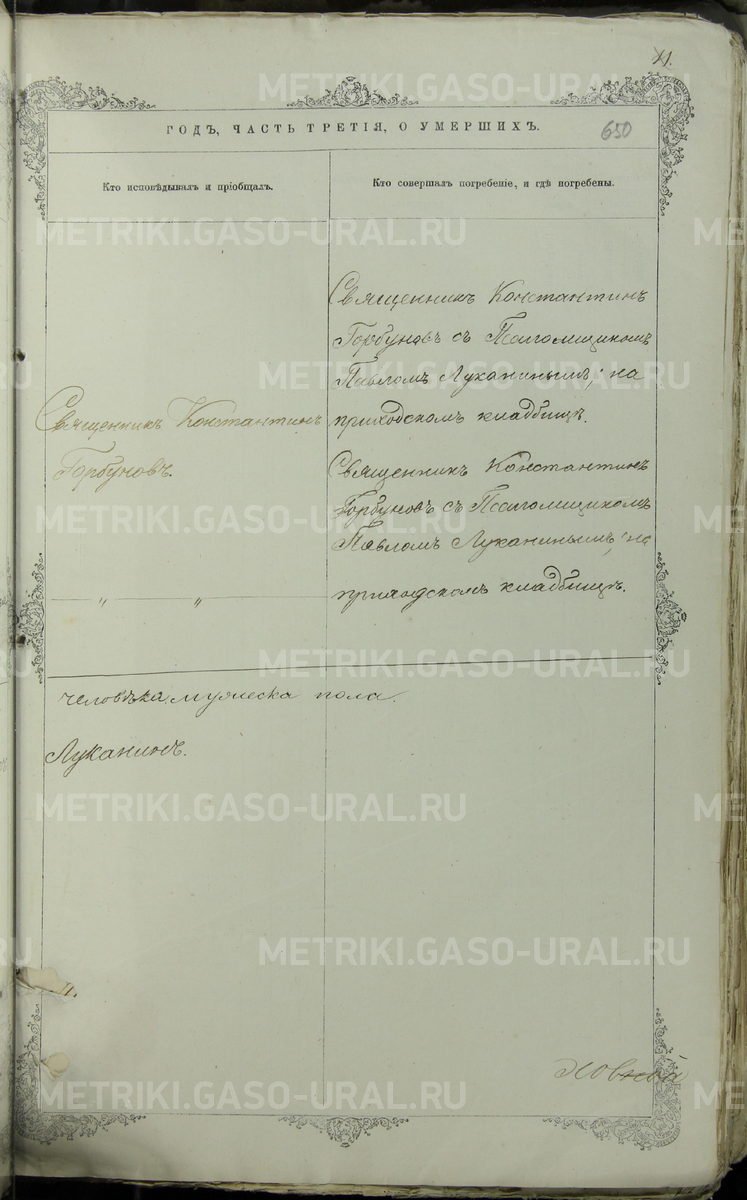 XI.
ГОДЪ, ЧАСТЬ ТРЕТІЯ, О УМЕРШИХЪ.
650
Кто исповѣдывалъ и пріобщалъ.
Кто совершалъ погребеніе, и гдѣ погребены.
Священникъ Константинъ
Горбуновъ.
〃 〃
Священникъ Константинъ
Горбуновъ съ Псаломщикомъ
Павломъ Луканинымъ, на
приходскомъ кладбищѣ.
Священникъ Константинъ
Горбуновъ съ Псаломщикомъ
Павломъ Луканинымъ, на
приходскомъ кладбищѣ.
человѣка, мужеска пола.
Луканинъ.
METRIKI.GASO-URAL.RU
METRIKI.GASO-URAL.RU
METRIKI.GASO-URAL.RU
METRIKI.GASO-URAL.RU
METRIKI.GASO-URAL.RU
METRIKI.GASO-URAL.RU
METRIKI.GASO-URAL.RU
METRIKI.GASO-URAL.RU